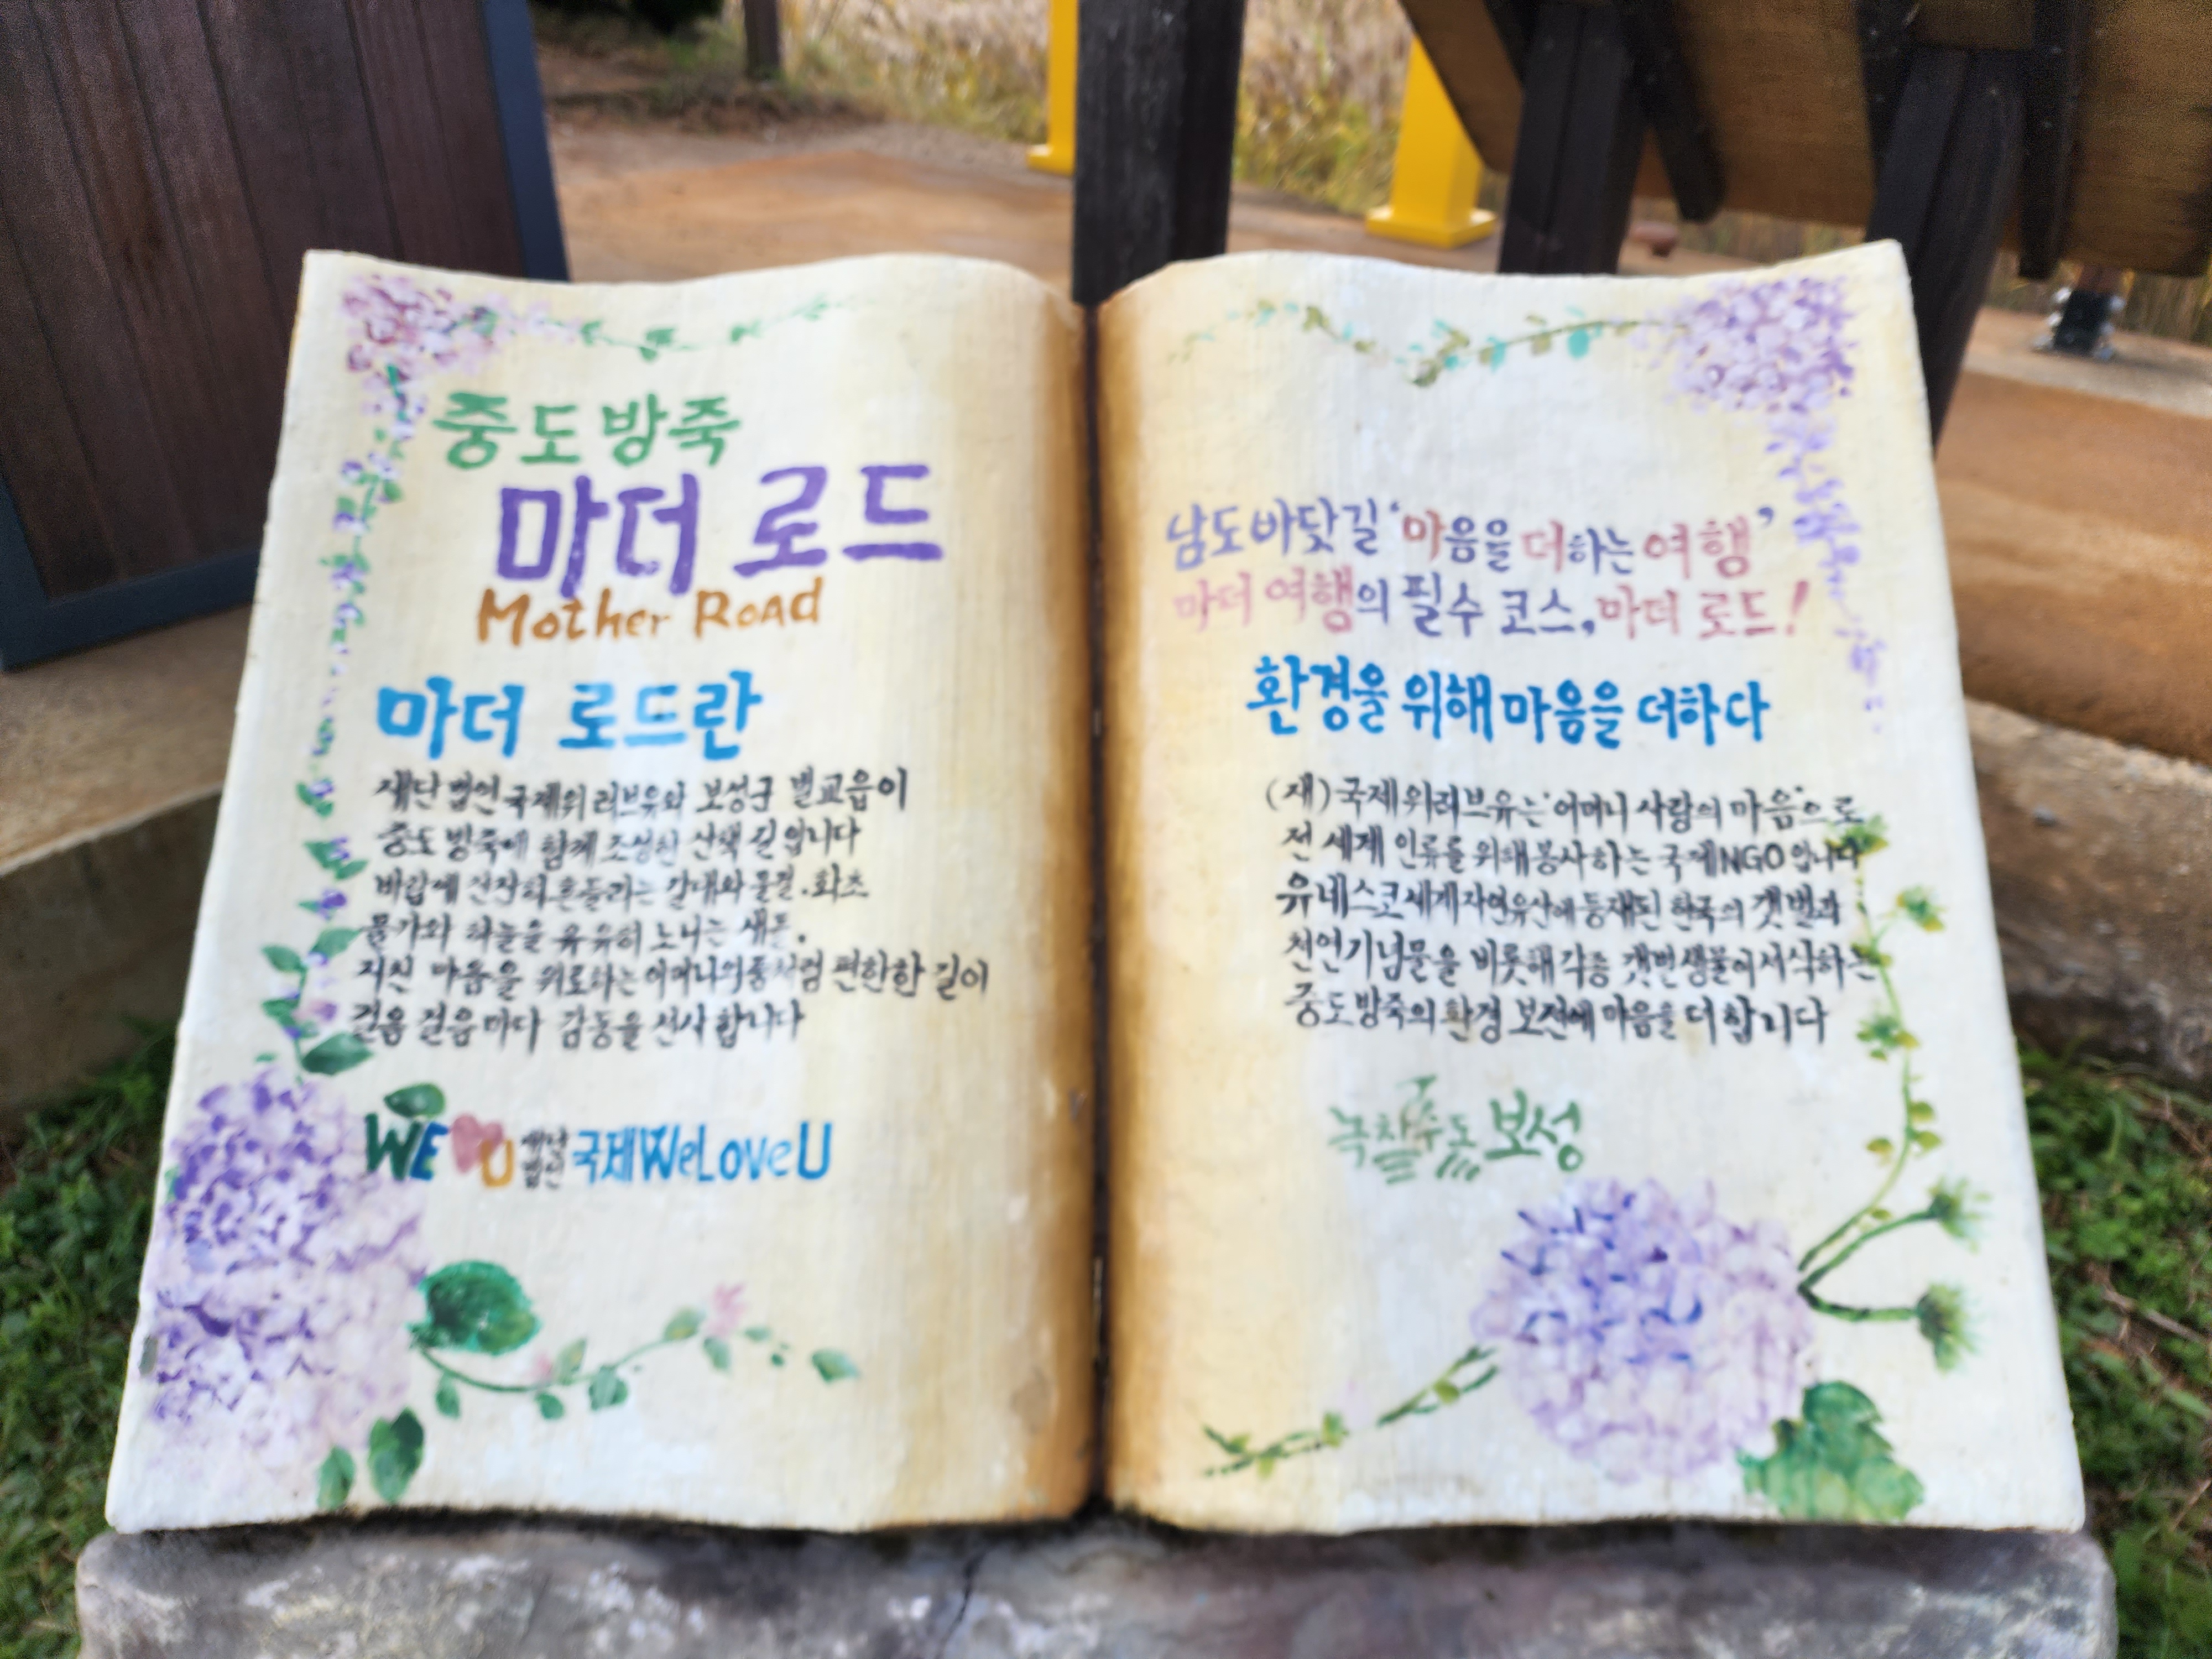 중도방죽
마더 로드
Mother Road
마더 로드란
재단법인 국제위러브유와 보성군 벌교읍이
중도 방죽에 함께 조성한 산책 길입니다
바람에 잔잔히 흔들리는 갈대와 물결, 화초
물가와 하늘을 유유히 노니는 새들.
지친 마음을 위로하는 어머니의 품처럼 편한한 길이
걸음 걸음마다 감동을 선사합니다
WE U 재단법인 국제WeLoveU
남도바닷길 '마음을 더하는 여행'
마더 여행의 필수 코스, 마더 로드!
환경을 위해 마음을 더하다
(재)국제위러브유는 '어머니 사랑의 마음'으로
전 세계 인류를 위해 봉사하는 국제NGO입니다
유네스코세계자연유산에 등재된 한국의 갯벌과
천연기념물을 비롯해 각종 갯벌생물이 서식하는
중도방죽의 환경 보전에 마음을 더합니다
녹차수도 보성